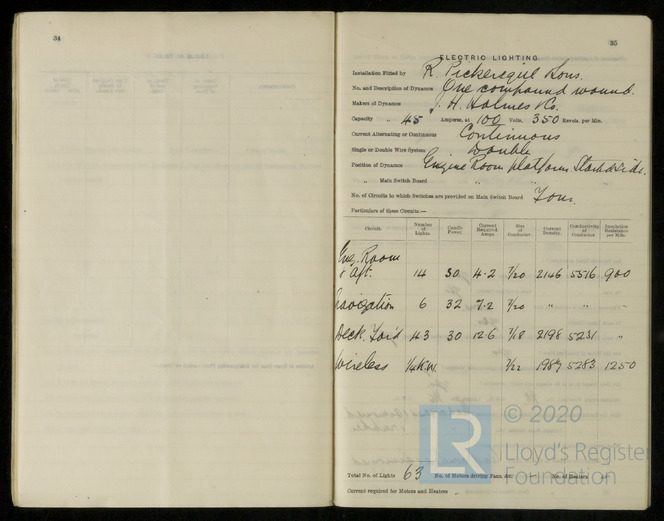 34
35
ELECTRIC LIGHTING
Installation Fitted by R. Pickersgill & Sons.
No. and Description of Dynamos One compound wound.
Makers of Dynamos J. H. Holmes & Co.
Capacity „ 45 Amperes, at 100 Volts, 350 Revols. per Min.
Current Alternating or Continuous Continuous
Single or Double Wire System Double
Position of Dynamos Engine Room platform Starbd Side.
„ Main Switch Board „ „
No. of Circuits to which Switches are provided on Main Switch Board Four
Particulars of these Circuits:—
Circuit. Number of Lights. Candle Power. Current Required. Amps. Size of Conductor. Current Density. Conductivity of Conductor Insulation Resistance per Mile.
Eng. Room
& Aft. 14 30 4.2 7/20 2146 5516 900
Navigation 6 32 7/20 „ „ „
Deck. Ford 43 30 12.6 7/18 2198 5231 „
Wireless 1/4 K.W. 7/22 1987 5283 1250
Total No. of Lights 63 No. of Motors driving Fans, &c. — No. of Heaters
Current required for Motors and Heaters
LR © 2020
Lloyd's Register
Foundation